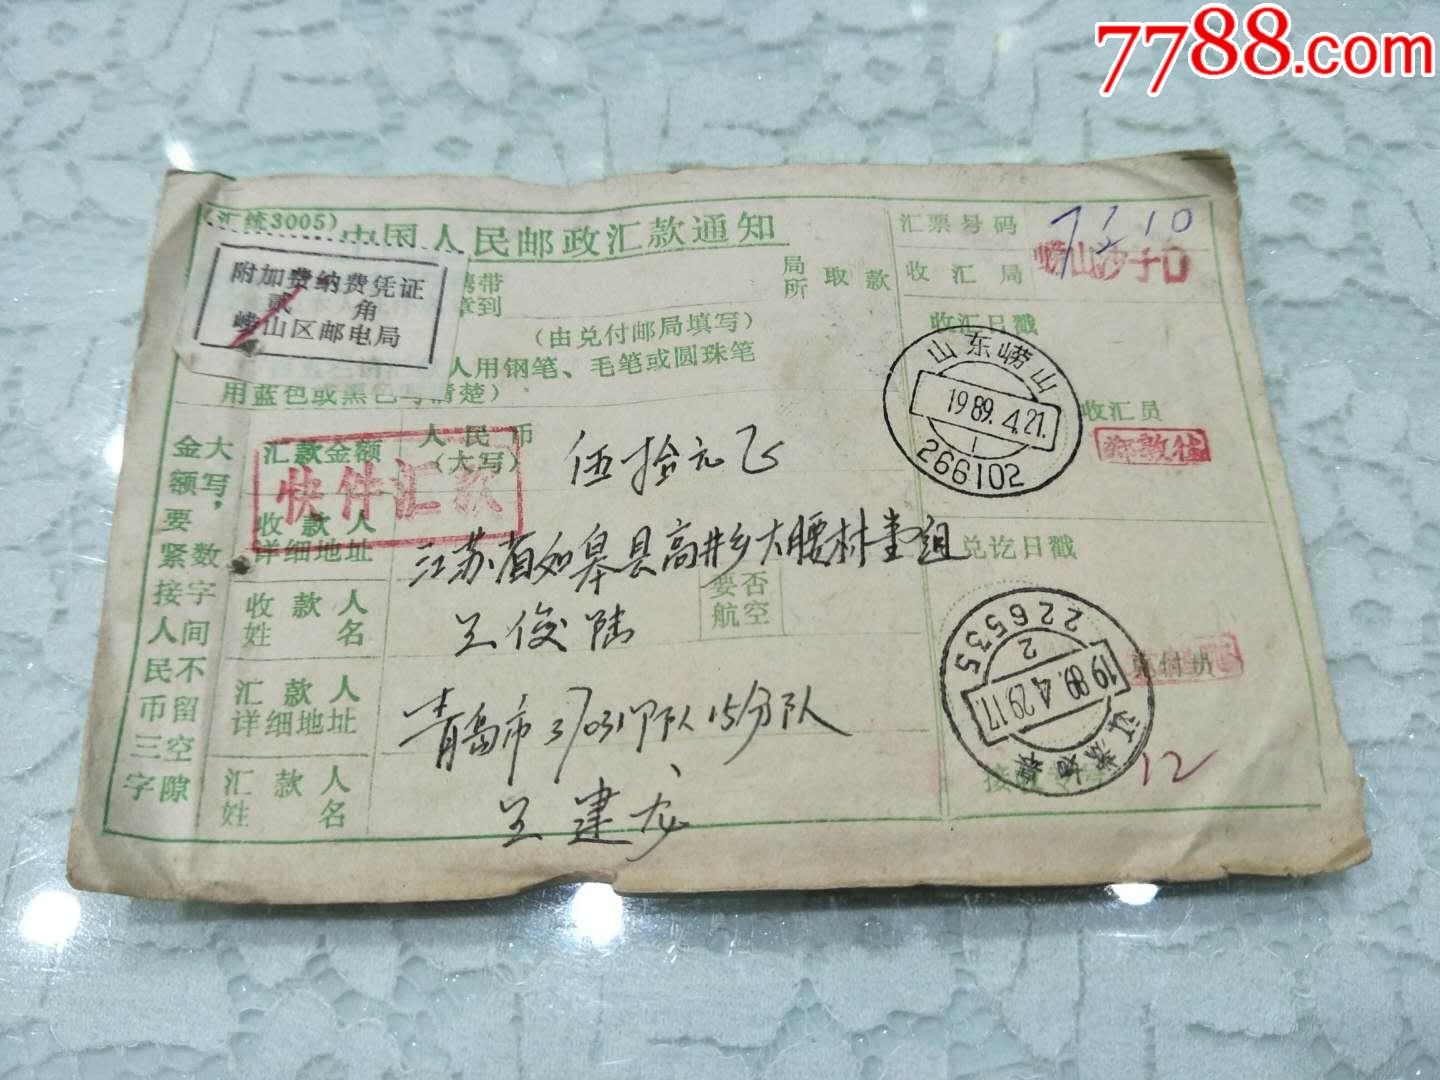 7788.com
(汇统3005)
中国人民邮政汇款通知
附加费纳费凭证
贰 角
崂山区邮电局
携带
拿到
局所
取款
(由兑付邮局填写)
人用钢笔、毛笔或圆珠笔
用蓝色或黑色写清楚)
汇票号码
7310
收汇局
崂山沙子口
收汇日戳
山东崂山
1989.4.21.
1
266102
收汇员
大写数字间不留空隙
金额,要紧接人民币三字
汇款金额
人民币
(大写)
伍拾元正
快件汇款
收款人
详细地址
江苏省如皋县高井乡大腰村
组
收款人
姓名
王俊陆
要否
航空
汇款人
详细地址
青岛市37031部队15分队
汇款人
姓名
王建龙
兑讫日戳
226535
2
1989.4.29.17.
江苏如皋
兑付员
12